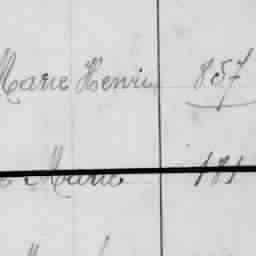 Marie Henri 857
Marie 181